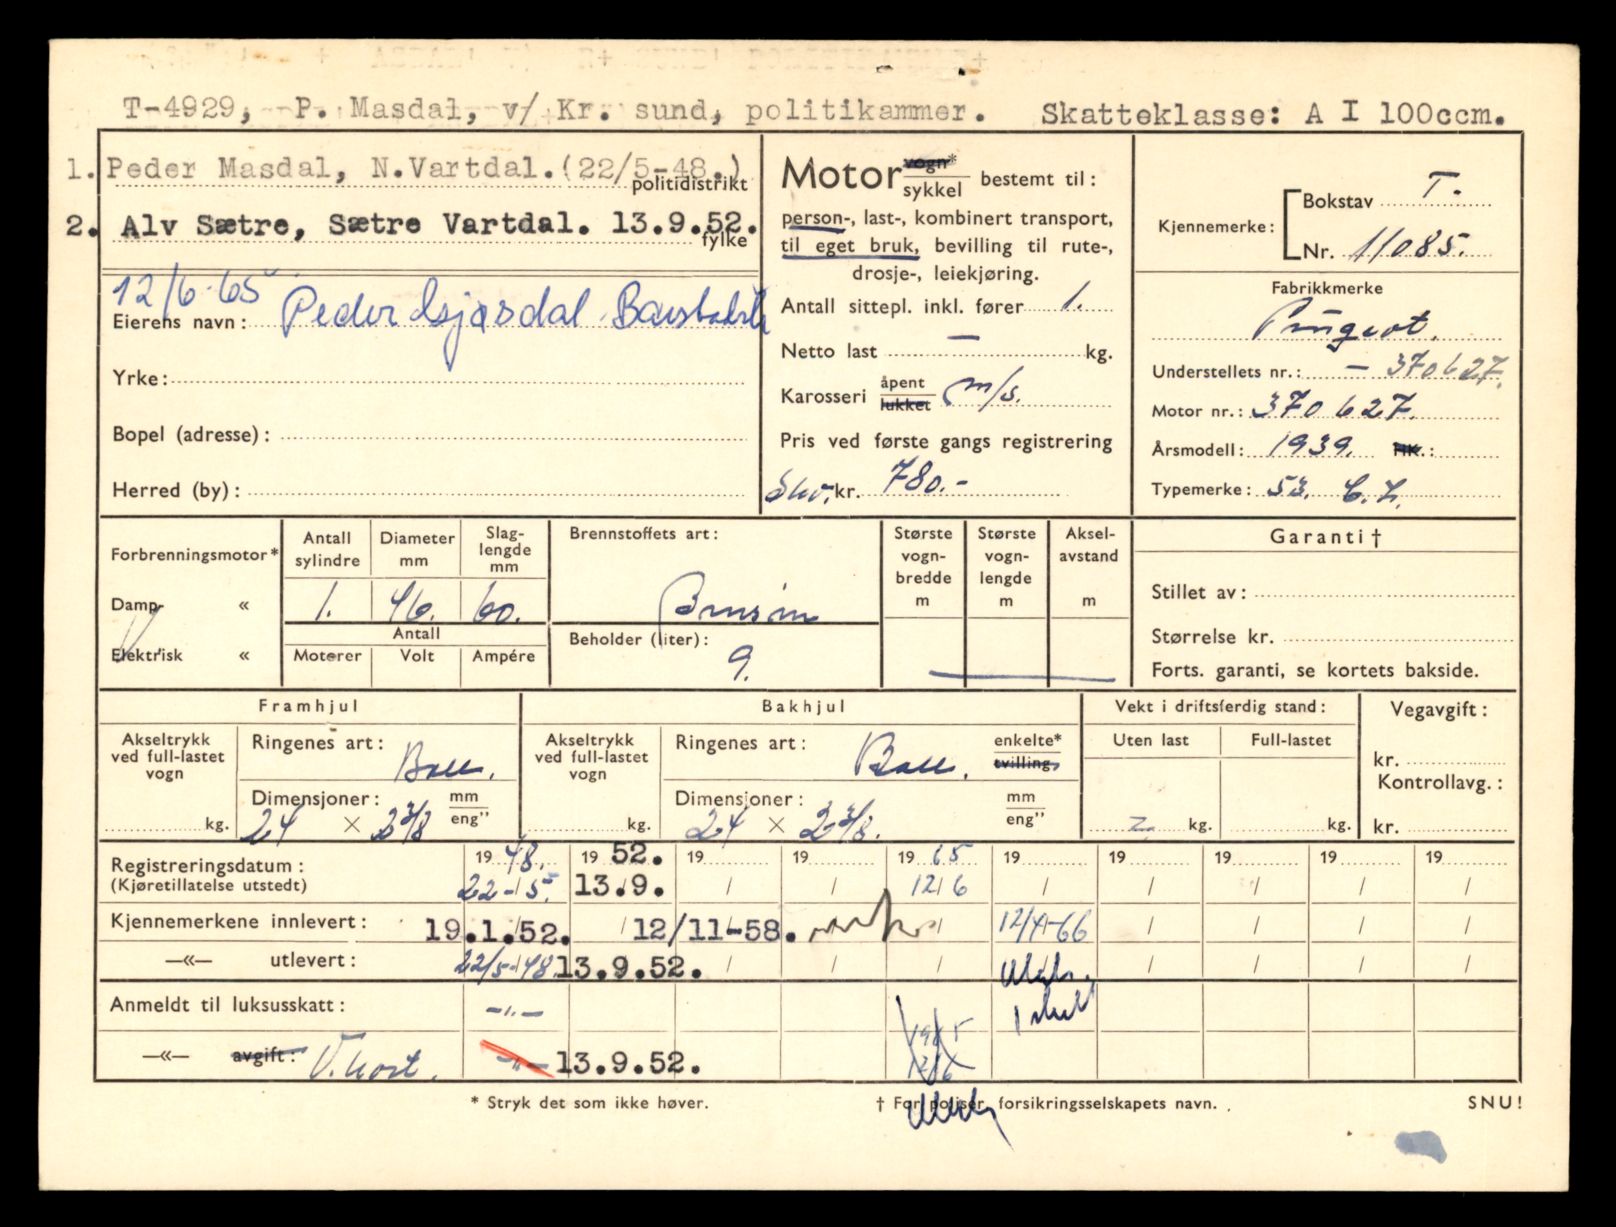 T-4929, P. Masdal, v/ Kr. sund, politikammer. Skatteklasse: A I 100ccm.
1. Peder Masdal, N.Vartdal.(22/5-48.)
politidistrikt
2. Alv Sætre, Sætre Vartdal. 13.9.52.
fylke
12/6-65 Peder
Eierens navn:
Yrke:
Bopel (adresse):
Herred (by):
Motor vogn* sykkel bestemt til:
person-, last-, kombinert transport,
til eget bruk, bevilling til rute-,
drosje-, leiekjøring.
Antall sittepl. inkl. fører 1.
Netto last — kg.
Karosseri åpent lukket m/s.
Pris ved første gangs registrering
kr. 780.-
Kjennemerke: Bokstav T.
Nr. 11085.
Fabrikkmerke
Peugeot.
Understellets nr.: — 370627.
Motor nr.: 370627.
Årsmodell: 1939. HK.:
Typemerke: 53.
Forbrenningsmotor*
Damp- «
Elektrisk «
Antall sylindre
Diameter mm
Slag-lengde mm
1. 46. 60.
Antall
Moterer Volt Ampére
Brennstoffets art:
Bensin
Beholder (liter):
9.
Største vogn-bredde m
Største vogn-lengde m
Aksel-avstand m
Garanti†
Stillet av:
Størrelse kr.
Forts. garanti, se kortets bakside.
Framhjul
Akseltrykk ved full-lastet vogn
kg.
Ringenes art:
Dimensjoner: mm eng"
24 × 2 3/8
Bakhjul
Akseltrykk ved full-lastet vogn
kg.
Ringenes art: enkelte* tvilling
Dimensjoner: mm eng"
24 × 2 3/8.
Vekt i driftsferdig stand:
Uten last Full-lastet
kg. kg.
Vegavgift:
kr.
Kontrollavg.:
kr.
Registreringsdatum: 19 48. 19 52. 19 19 19 65 19 19 19 19 19
(Kjøretillatelse utstedt) 22-5. 13.9. / / 12/6 / / / / /
Kjennemerkene innlevert: 19.1.52. 12/11-58. 12/4-66
—«— utlevert: 22/5-48 13.9.52.
Anmeldt til luksusskatt: -"-
—«— avgift: -"- 13.9.52.
1965
12/6
* Stryk det som ikke høver. † For poliser, forsikringsselskapets navn. SNU!